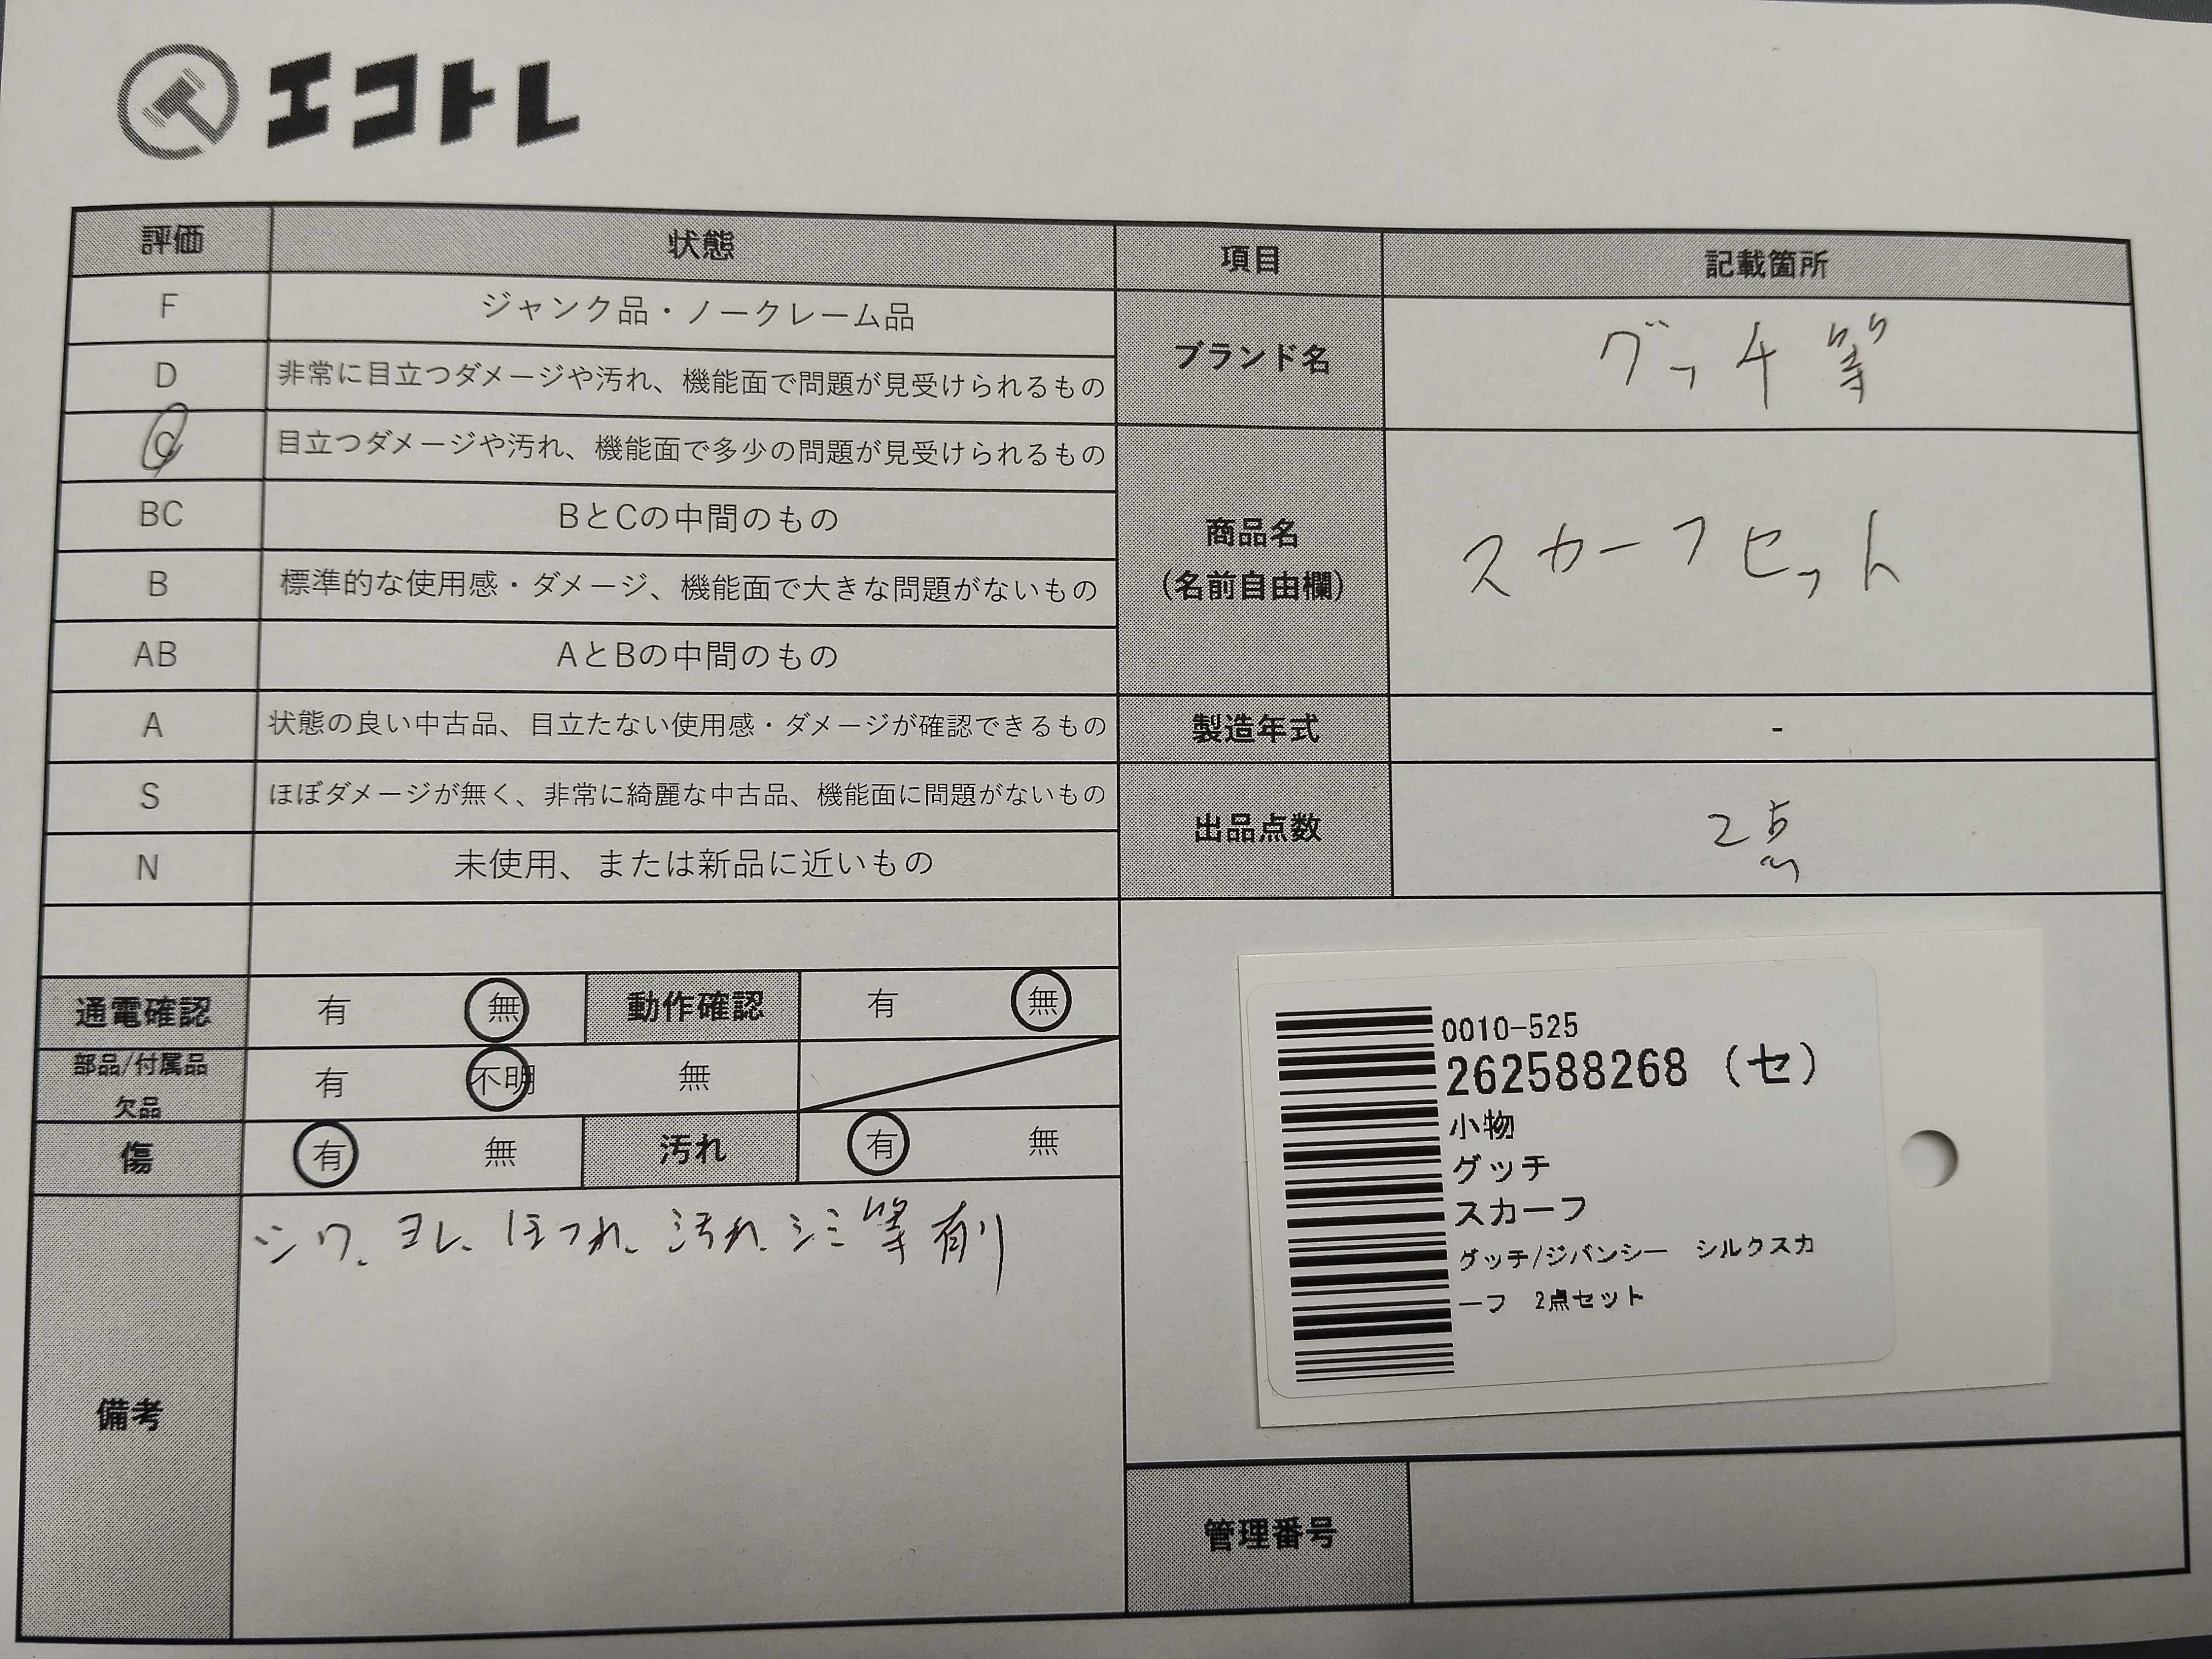 エコトレ
評価 状態 項目 記載箇所
F ジャンク品・ノークレーム品
D 非常に目立つダメージや汚れ、機能面で問題が見受けられるもの
ブランド名 グッチ等
C 目立つダメージや汚れ、機能面で多少の問題が見受けられるもの
BC BとCの中間のもの
商品名
(名前自由欄)
スカーフセット
B 標準的な使用感・ダメージ、機能面で大きな問題がないもの
AB AとBの中間のもの
A 状態の良い中古品、目立たない使用感・ダメージが確認できるもの
製造年式 -
S ほぼダメージが無く、非常に綺麗な中古品、機能面に問題がないもの
出品点数 2点
N 未使用、または新品に近いもの
通電確認 有 無 動作確認 有 無
部品/付属品
欠品
有 不明 無
傷 有 無 汚れ 有 無
備考
シワ、ヨレ、ほつれ、汚れ、シミ等有り
0010-525
262588268 (セ)
小物
グッチ
スカーフ
グッチ/ジバンシー シルクスカ
ーフ 2点セット
管理番号